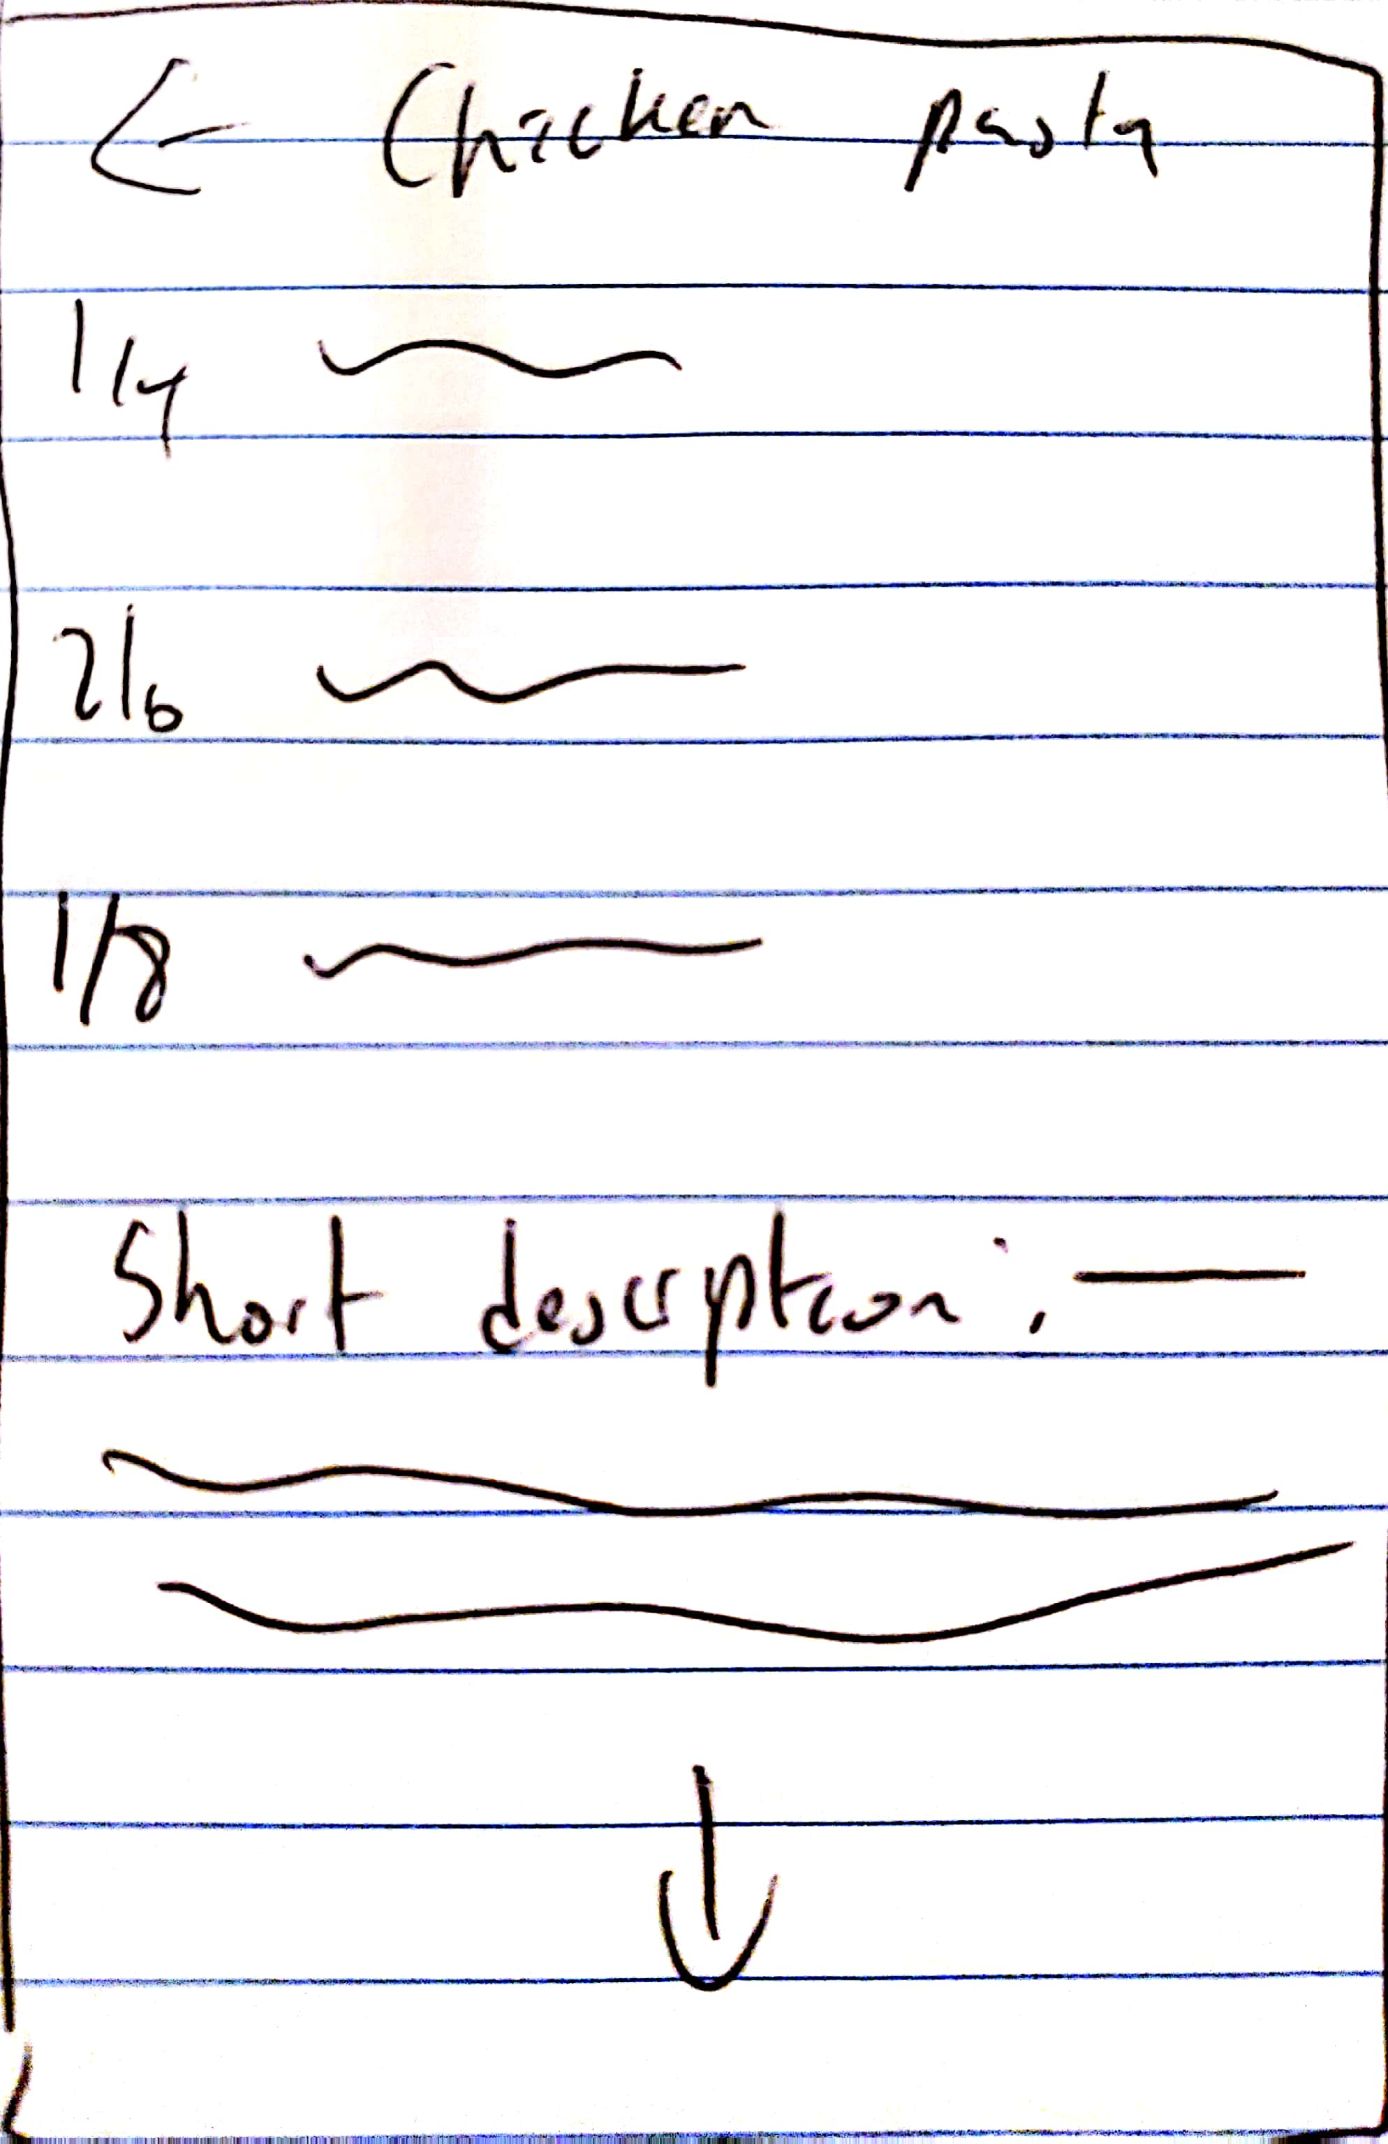 ← Chicken pasta
1/4
2/6
1/8
Short description: